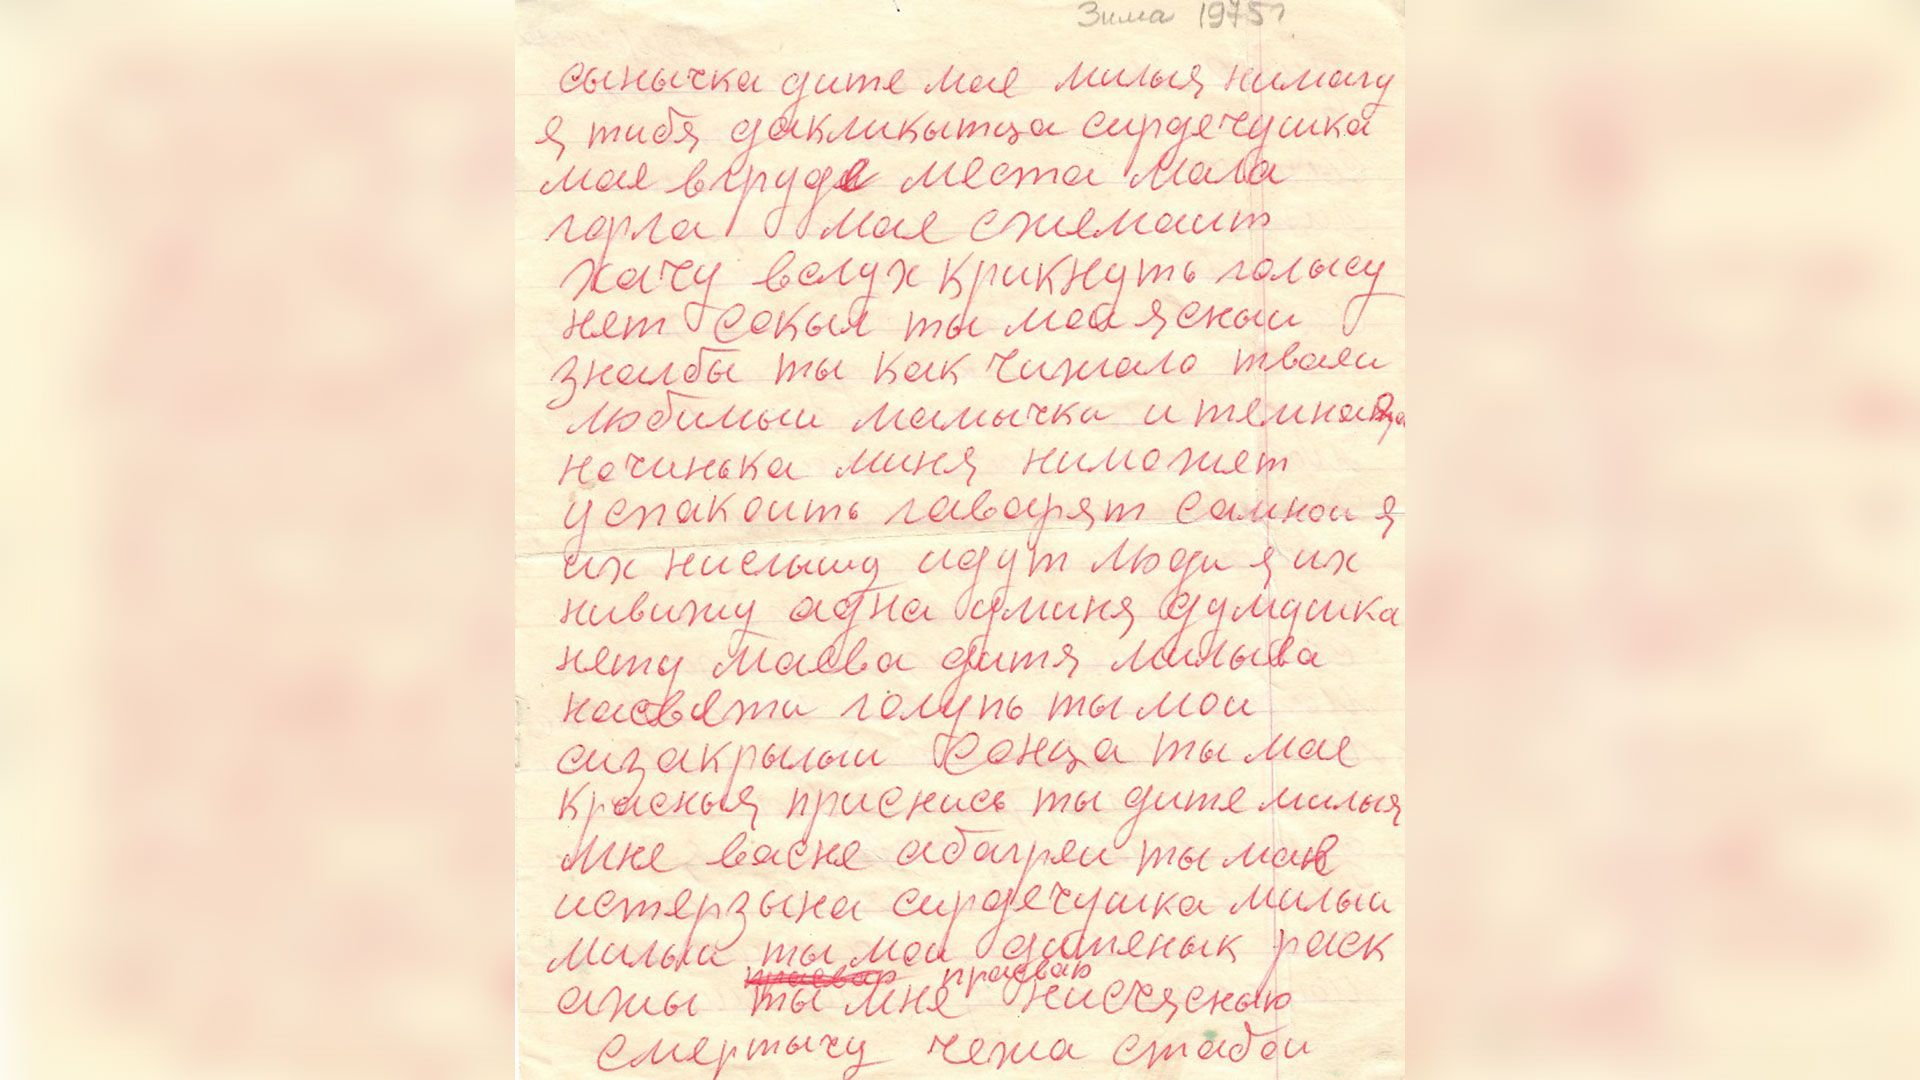 Зима 1975г
сынычка дите мае милыя нимагу
я тибя дакликытца сирдечушка
мае вгруде места мала
горла мае сжемаит
хачу вслух крикнуть голысу
нет сокыл ты мои ясныи
зналбы ты как чижало тваеи
любимыи мамычка и темная
ночинька миня ниможет
успакоить гаварят самнои я
их нислышу идут люди я их
нивижу адна уминя думушка
нету маева дитя милыва
насвети голупь ты мои
сизакрылыи Сонца ты мае
красныя приснись ты дите милыя
мне васне абагреи ты мае
истерзына сирдечушка милыи
милыи ты мои дитенык раск
праевою
ажы ты мне нисчясною
смертычу чежа стабои